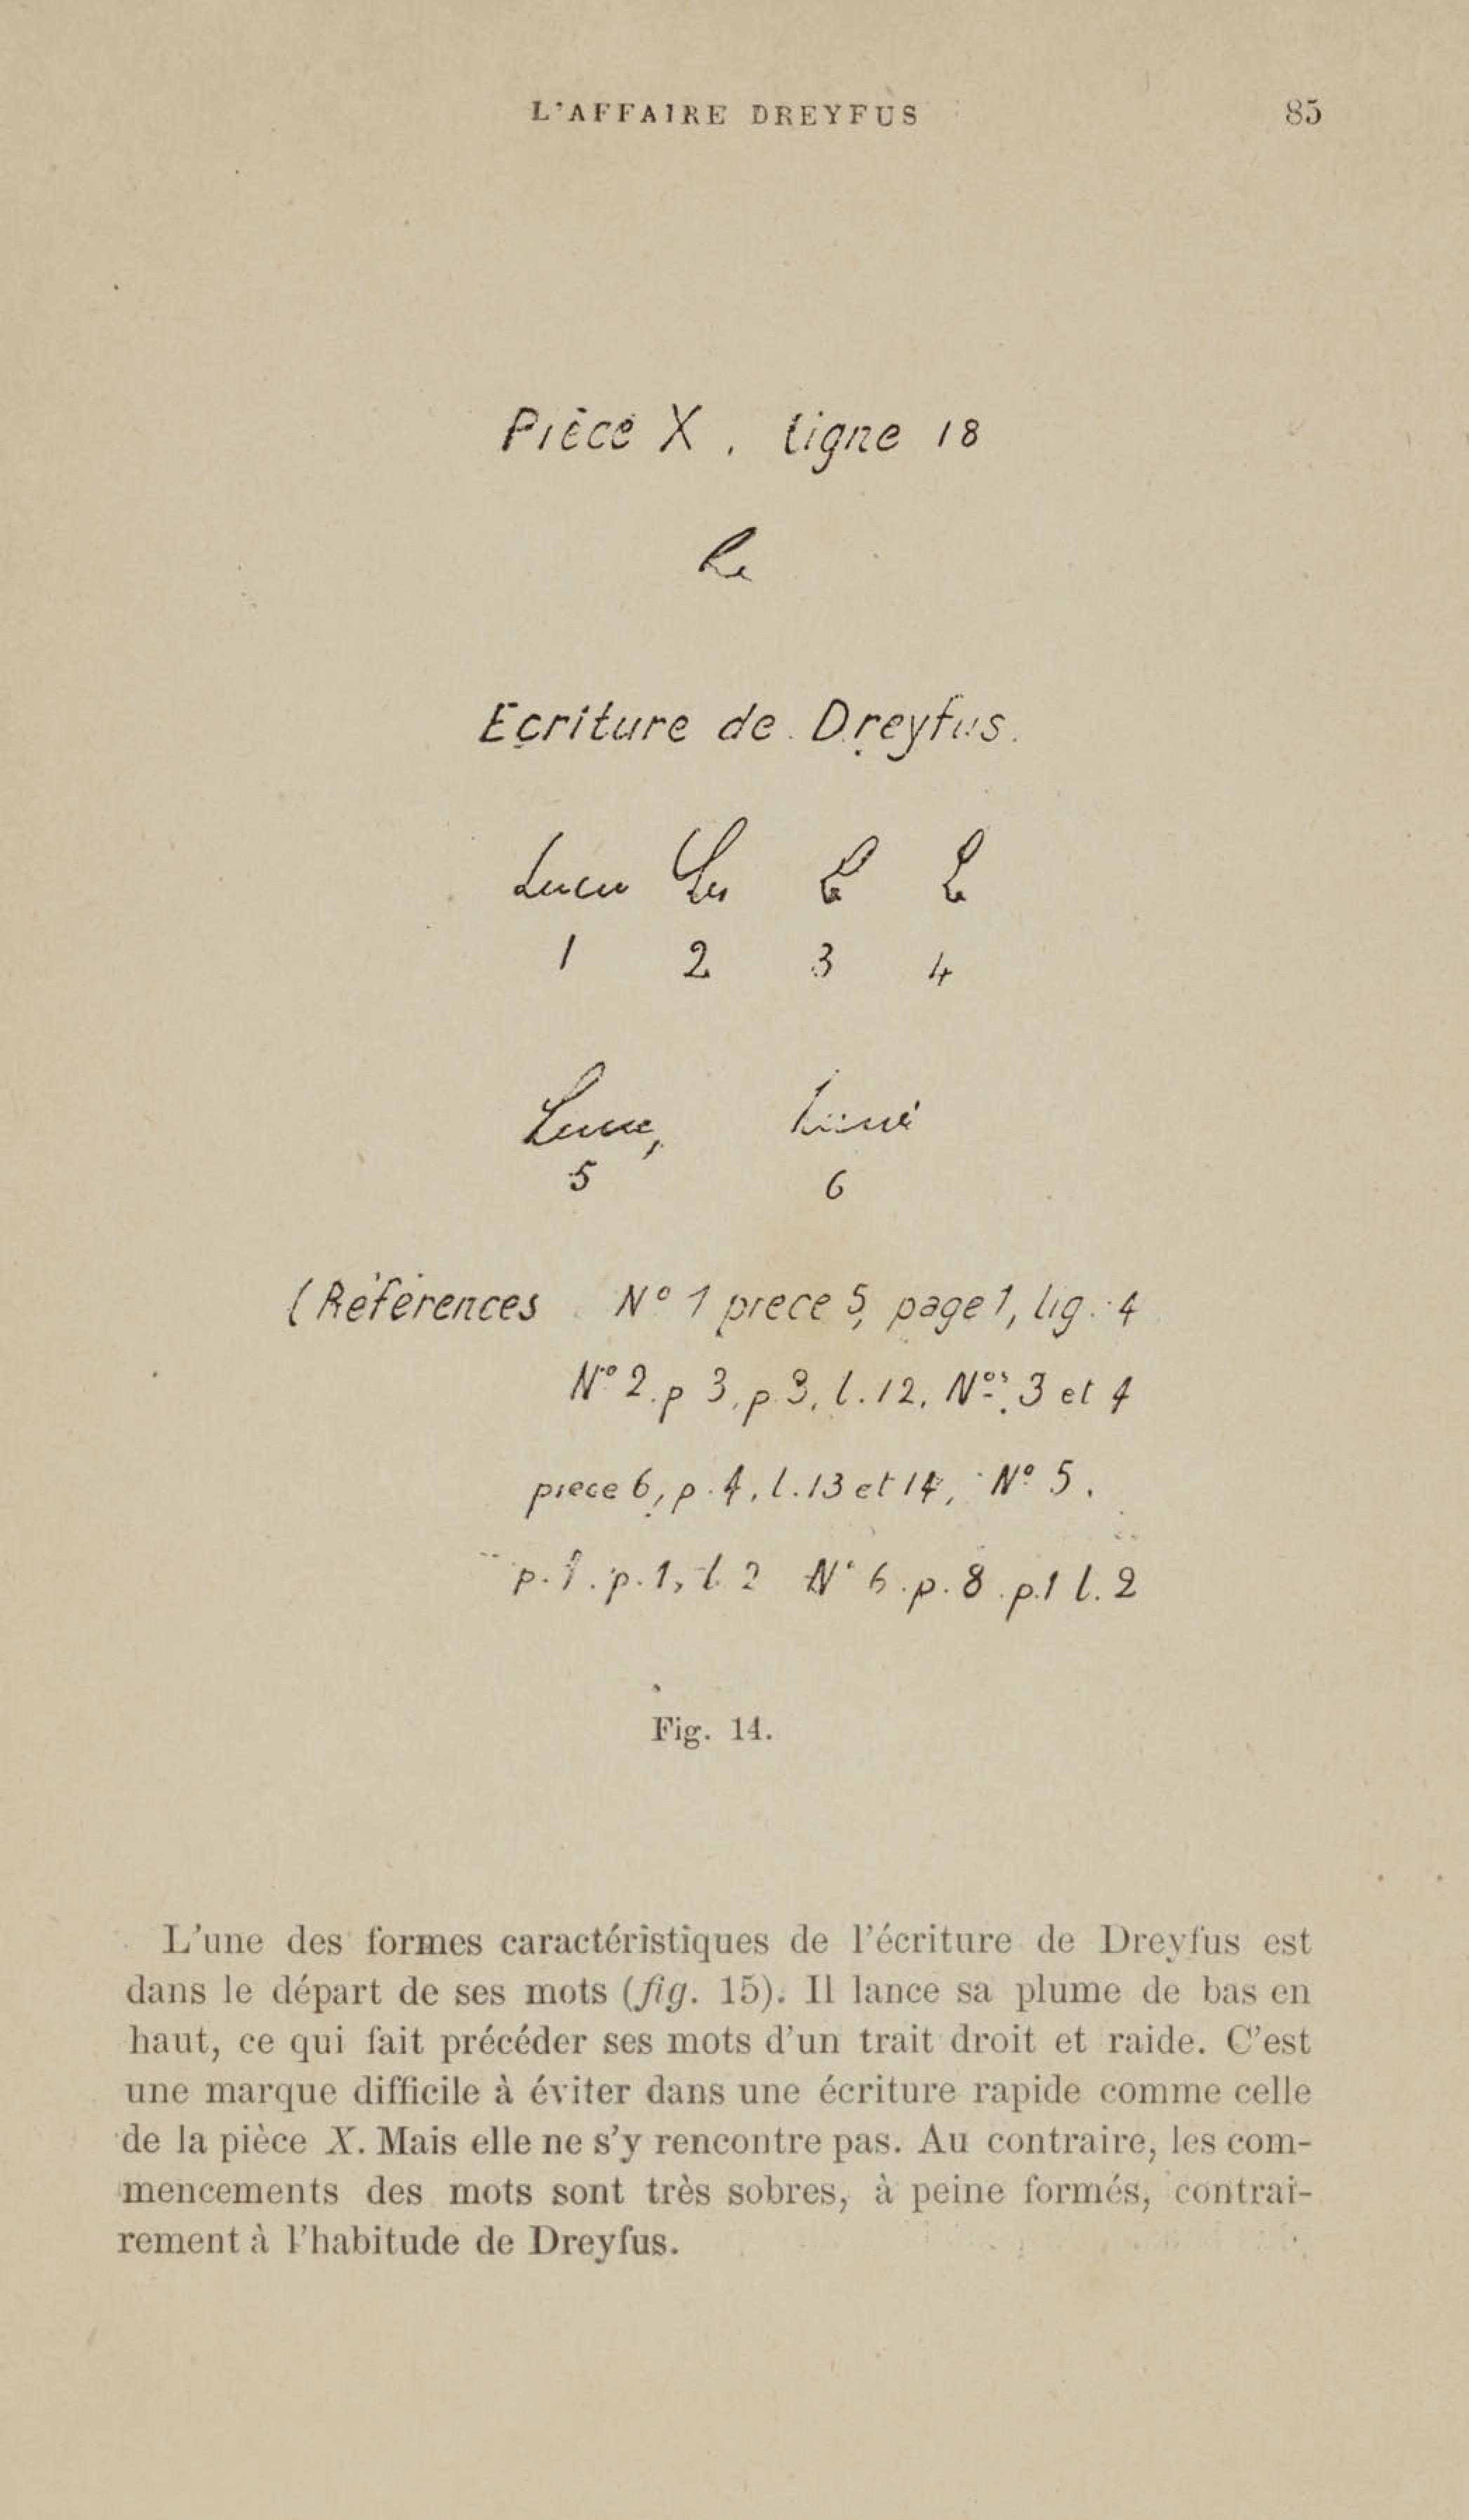 L'AFFAIRE DREYFUS 85
Pièce X. ligne 18
Le
Ecriture de Dreyfus.
Les
1 2 3 4
5 6
(Références N° 1 piece 5, page 1, lig. 4
N° 2. p 3, p. 3, l. 12, Nos 3 et 4
piece 6, p. 4, l. 13 et 14, N° 5.
p. p. 1, l. 2 N° 6. p. 8. p. 1 l. 2
Fig. 14.
L'une des formes caractéristiques de l'écriture de Dreyfus est
dans le départ de ses mots (fig. 15). Il lance sa plume de bas en
haut, ce qui fait précéder ses mots d'un trait droit et raide. C'est
une marque difficile à éviter dans une écriture rapide comme celle
de la pièce X. Mais elle ne s'y rencontre pas. Au contraire, les com-
mencements des mots sont très sobres, à peine formés, contrai-
rement à l'habitude de Dreyfus.